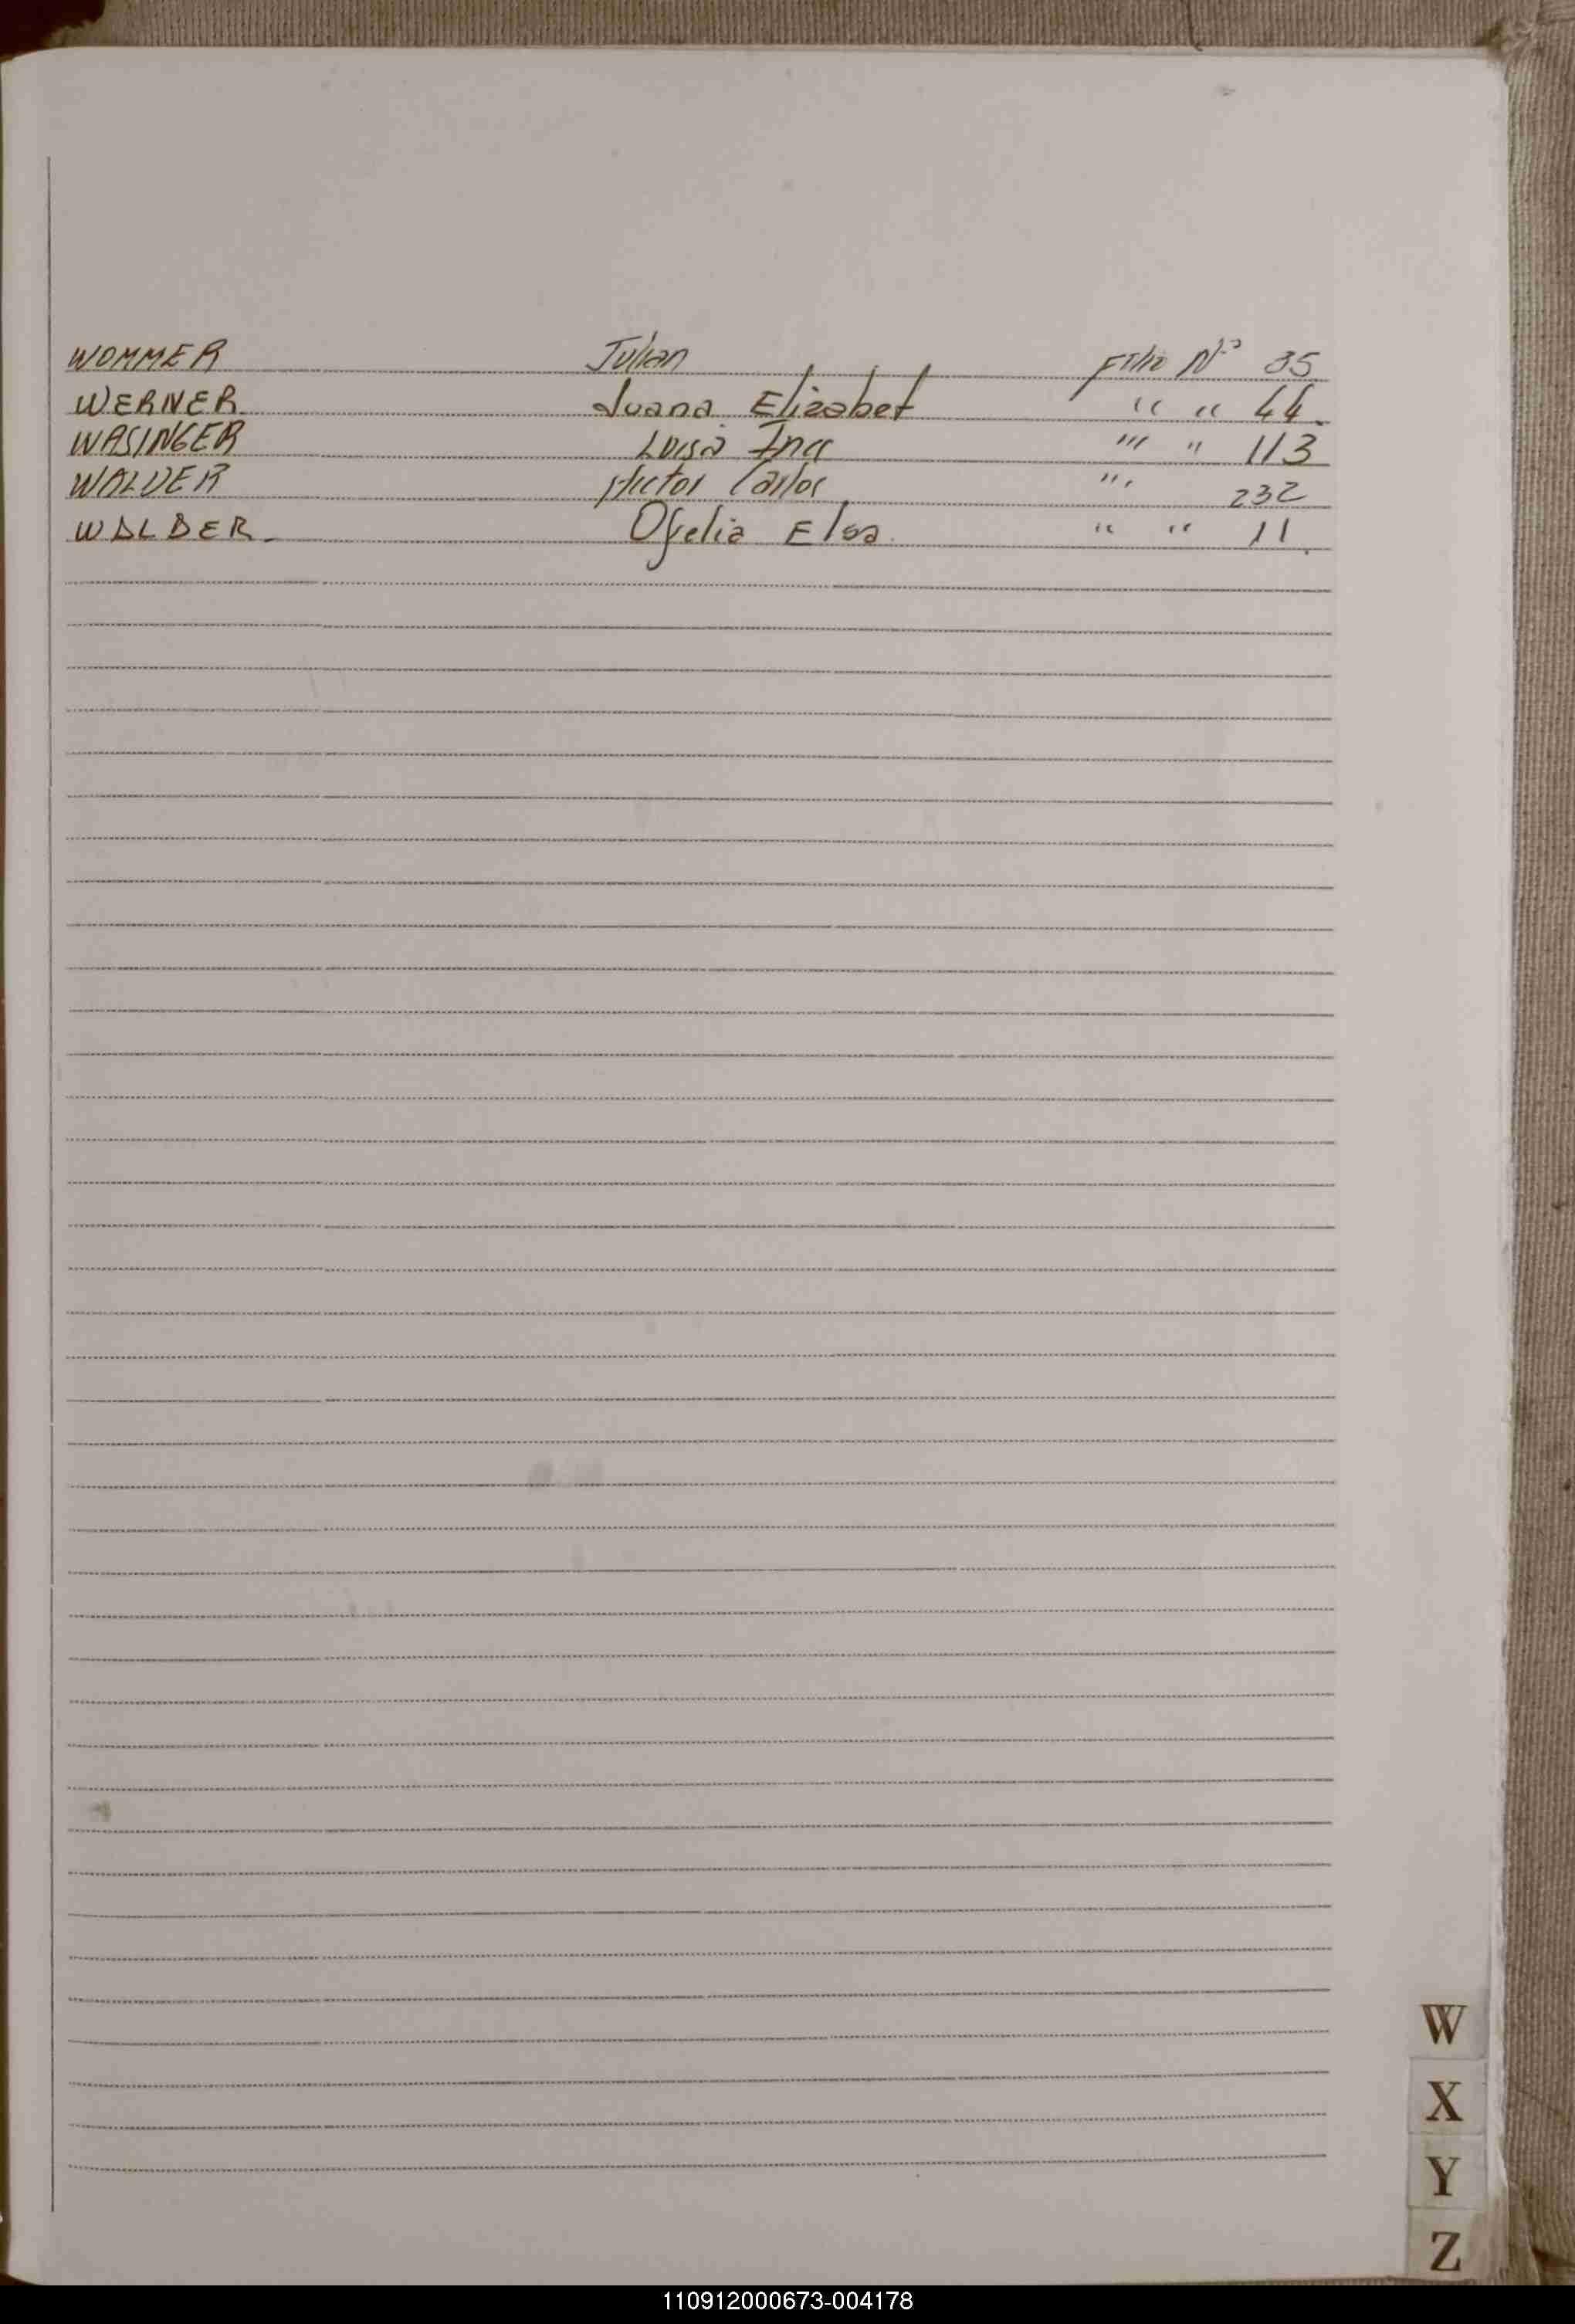 WOMMER Julian Folio Nº 35
WERNER Juana Elizabet " " 44.
WASINGER Luisa Ines " " 113
WALVER Hector Carlos " 232
WALDER. Ofelia Elsa. " " 11.
W
X
Y
Z
110912000673-004178